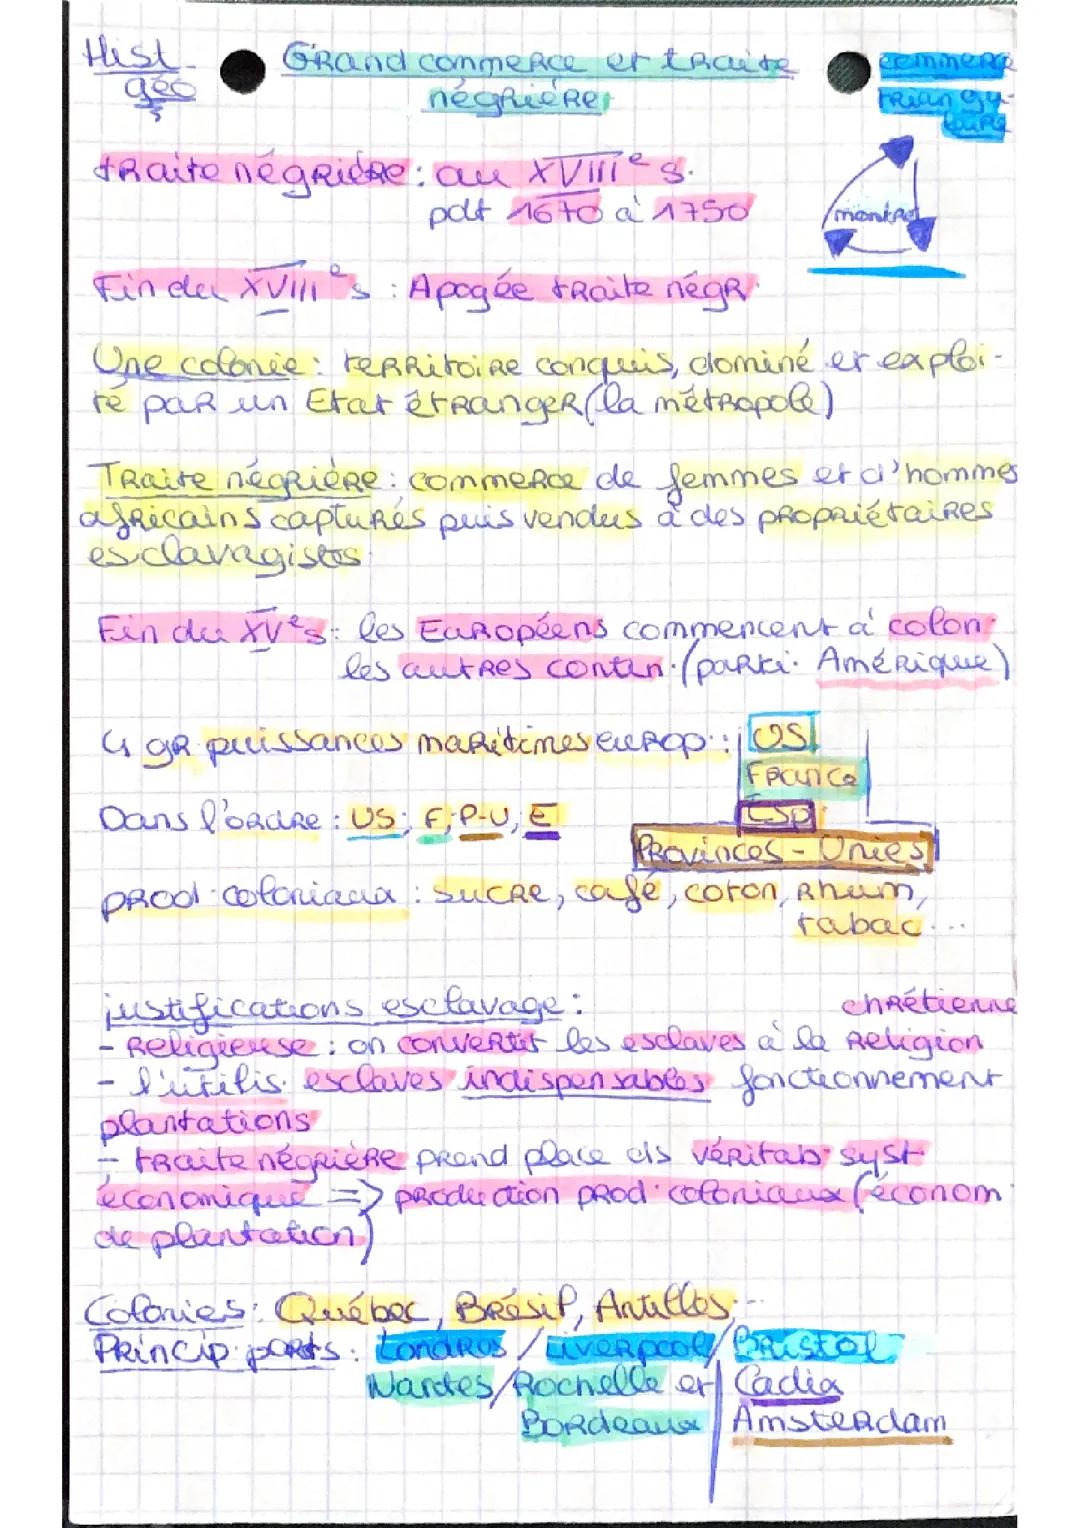 Hist géo
Grand commerce et traite négrière
commerce triangulaire
montre
traite négrière : au XVIIIe s.
pdt 1670 à 1750
Fin du XVIIIe s : Apogée traite négr.
Une colonie : territoire conquis, dominé et exploi-
té par un Etat étranger (la métropole)
Traite négrière : commerce de femmes et d'hommes
africains capturés puis vendus à des propriétaires
esclavagistes
Fin du XVe s : les Européens commencent à colon.
les autres contin. (parti. Amérique)
4 gr puissances maritimes europ. :
US
France
Esp
Provinces - Unies
Dans l'ordre : US, F, P-U, E
prod. coloniaux : sucre, café, coton, rhum,
tabac...
justifications esclavage :
- Religieuse : on convertit les esclaves à la religion chrétienne
- l'utilis. esclaves indispensables fonctionnement
plantations
- traite négrière prend place ds véritab. syst
économique => production prod. coloniaux (économ.
de plantation)
Colonies : Québec, Brésil, Antilles...
Princip. ports : Londres / Liverpool / Bristol
Nantes / Rochelle et Cadix
Bordeaux Amsterdam